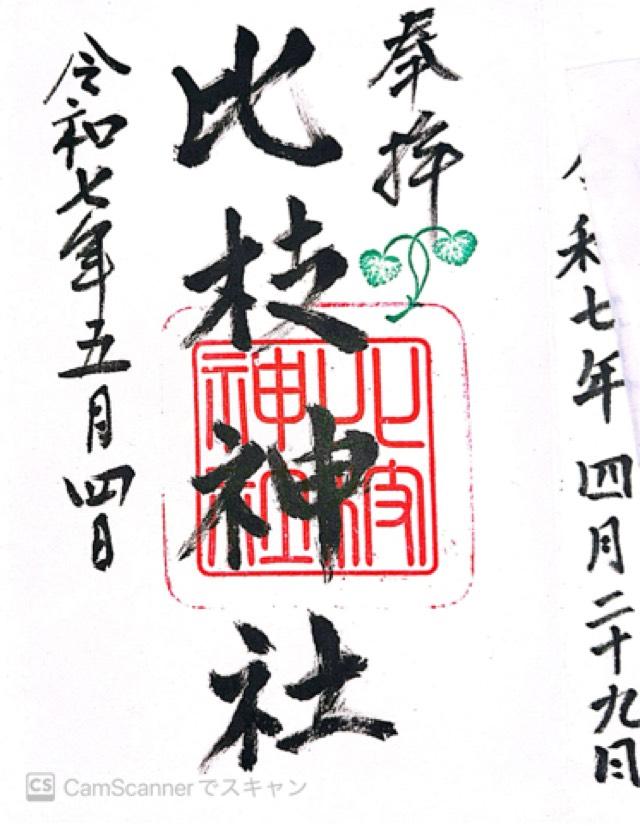 和七年四月二十九日
奉拝
比枝神社
比枝
神社
令和七年五月四日
CS CamScannerでスキャン